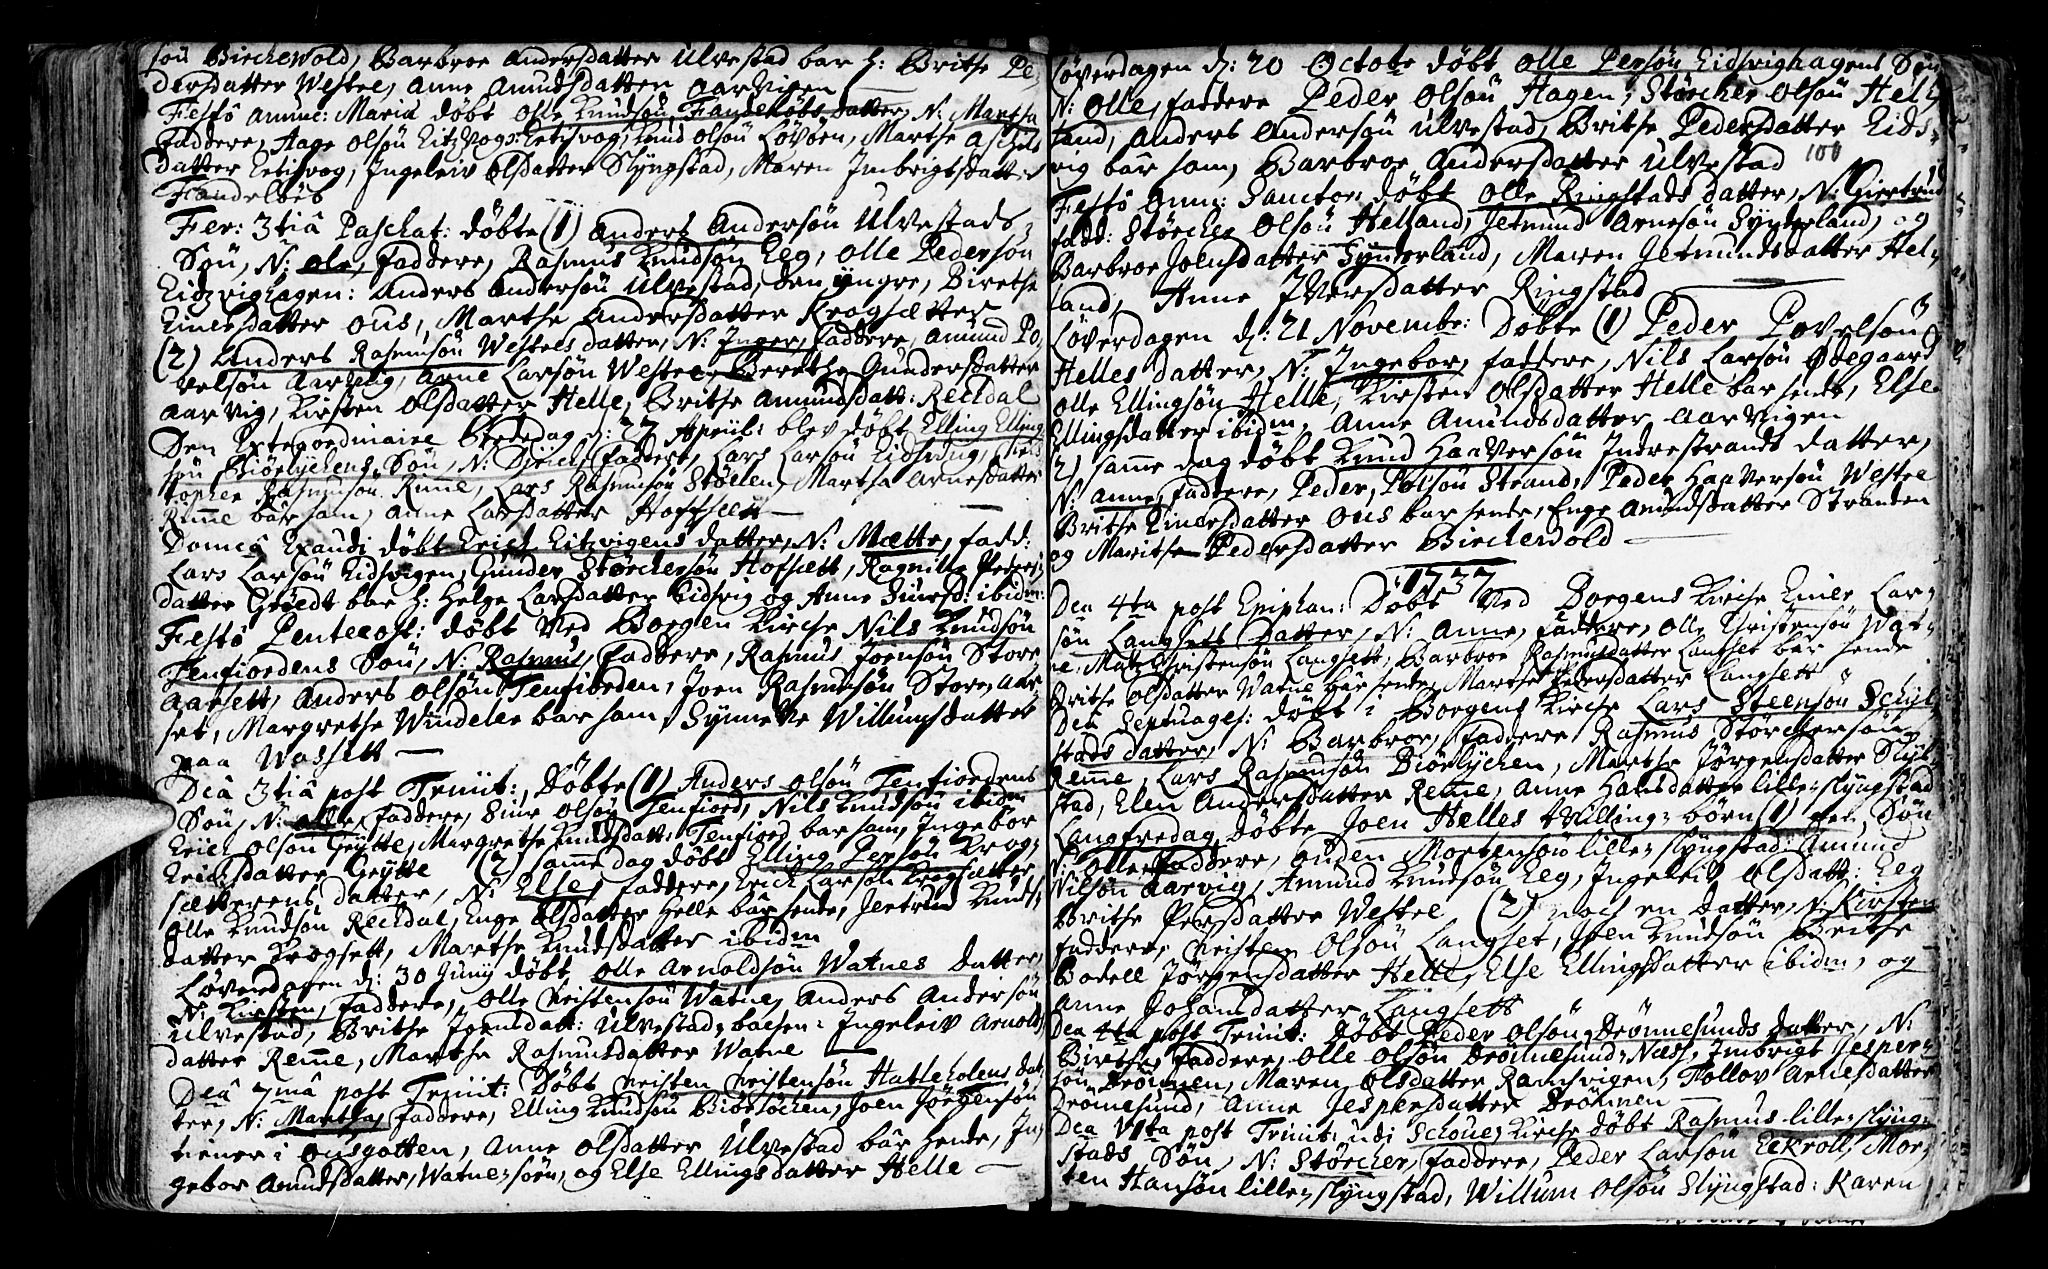 søn Birchevold, Barbroe Andersdatter Ulvestad bar h: Brithe Pe-
dersdatter Westre, Anne Amundsdatter Aarvigen
Festô Annunc: Mariæ döbt Olle Knudsøn Handelöbs datter, N: Martha
Faddere, Hage Olsøn Knud Olsøn Lövoen, Marthe
datter Ingeleiv Olsdatter Slyngstad, Maren Imbrigtsdatter
Handelöbs
Fer: 3tiâ Paschat: döbte (1) Anders Andersøn Ulvestads
Søn, N: Ole, Faddere, Rasmus Knudsøn Eeg, Olle Pedersøn
Eidzvighagen: Anders Andersøn Ulvestad, den yngre, Birethe
Einersdatter Ous, Marthe Andersdatter Krogsætter
(2) Anders Rasmusøn Westres datter, N: Inger, Faddere, Amund Po-
velsøn Aarvig, Arne Larsøn Westre, Berethe Gundersdatter
Aarvig, Kirsten Olsdatter Helle, Brithe Amundsdatt: Reckdal
Den Extraordinaire Bededag d: 27 April: blev döbt Elling Elling
søn Biörlychens Søn, N: Faddere, Lars Larsøn Eidsvig,
topher Rasmusøn Rime, Lars Rasmusøn Stölen, Martha Arnesdatter
Rime bar ham, Anne Larsdatter Hoffseth
Domcâ Exaudi döbt Erich Eitzvigens datter, N: Mætte, Fadd:
Lars Larsøn Eidsvigen, Gunder Störchersøn Hofsætt, Ragnille Peders-
datter Gröedt bar h: Helge Larsdatter Eidsvig og Anne Sinersd: ibidem:
Festô Pentecost: döbt ved Borgen Kirche Nils Knudsøn
Tenfiordens Søn, N: Rasmus, Faddere, Rasmus Joensøn Store
Aarsett, Anders Olsøn Tenfiorden, Joen Rasmusøn Store Aar-
set, Margrethe Windele bar ham, Synneve Willumsdatter
paa Wassett
Dcâ 3tiâ post Trinit:, Döbte (1) Anders Olsøn Tenfiordens
Søn, N: Olle, Faddere, Siver Olsøn Tenfiord, Nils Knudsøn ibidm
Erich Olsøn Grytte, Margrethe Knudsdatt: Tenfiord bar ham, Ingebor
Erichsdatter Grytte (2) samme dag döbt Elling Persøn Krog-
sætterens datter, N: Else, Faddere, Erich Larsøn Krogsætter,
Olle Knudsøn Reckdal, Enge Olsdatter Helle bar hende, Jertrud Knuds-
datter Krogsett, Marthe Knudsdatter ibidm
Löverdagen d: 30 Junij döbt Olle Arnoldsøn Watnes datter,
N: Kirsten, Faddere, Olle Christensøn Watne, Anders Andersøn
Ulvestad, Brithe Joensdatt: Ulvestad, Ingeleiv Arnolds
datter Reme, Marthe Rasmusdatter Watne
Dcâ 7mâ post Trinit: Döbt Christen Christensøn Hatleholens dat-
ter, N: Martha, Faddere, Elling Knudsøn Joen Jörgensøn
tiener i Ousgotten, Anne Olsdatter Ulvestad bar hende, In-
gebor Amundsdatter, Watne og Else Ellingsdatter Helle
Löverdagen d: 20 Octobr döbt Olle Persøn Eidsvighagens Søn
N: Olle, Faddere Peder Olsøn Hagen, Störcher Olsøn Hel-
land, Anders Andersøn Ulvestad, Brithe Pedersdatter Eids-
vig bar ham, Barbroe Andersdatter Ulvestad 100
Festô Omn: Sanctor: döbt Olle Ringstads datter, N: Giertrud
Fadd: Störcher Olsøn Helland, Jetmund Arnesøn Synderland, og
Barbroe Joensdatter Synderland, Maren Jetmundsdatter Hel-
land, Anne Iversdatter Ringstad
Löverdagen d: 21 Novembr: Döbte (1) Peder Povelsøn
Helles datter, N: Ingebor, Faddere, Nils Larsøn Ödegaard
Olle Ellingsøn Helle, Kirsten Olsdatter Helle bar hende, Else
Ellingsdatter ibidm, Anne Amundsdatter Aarvigen
2) samme dag döbt Knud Haaversøn Indrestrands datter,
N: Anne, Faddere, Peder Polsøn Strand, Peder Haaversøn Westre
Brithe Einersdatter Ous bar hende, Enge Amundsdatter Stranden
og Marithe Pedersdatter Birchevold
1737
Dca 4ta post Epiphan: Döbt ved Borgens Kirche Einer Lar-
søn Langsets Datter, N: Anne, Faddere, Olle Christensøn Wat-
ne, Mats Christensøn Langsett, Barbroe Rasmusdatter Langset bar hende
Brithe Olsdatter Watne bar hende, Marthe Pedersdatter Langsett
Dca Septuages: döbt i Borgens Kirche Lars Steensøn Schyl-
stads datter, N: Barbroe, Faddere Rasmus Störchersøn
Reme, Lars Rasmusøn Biörlychen, Marthe Jörgensdatter Schyl-
stad, Elen Andersdatter Reme, Anne Hansdatter lille-slyngstad
Langfredag döbte Joen Helles tvilling-börn (1) een Søn
N: Olle, Faddere, Auden Mortensøn lille-slyngstad, Amund
Nilsøn Aarvig, Amund Knudsøn Eeg, Ingeleiv Olsdatt: Eeg
Brithe Persdatter Westre (2) noch en Datter, N: Kirsten
Faddere, Christen Olsøn Langset, Joen Knudsøn Brithe
Bodell Jörgensdatter Helle, Else Ellingsdatter ibidm, og
Anne Johansdatter Langsett
Dca 4ta post Trinit: döbt Peder Olsøn Drönnesunds datter, N:
Birthe, Faddere, Olle Olsøn Drönnesund-Næss, Imbrigt Jesper-
søn Drönnen, Maren Olsdatter Ramsvigen, Follov Arnesdatter
Drönnesund, Anne Jespersdatter Drönnen
Dca VIta post Trinit: udi Schoue Kirche döbt Rasmus lille-slyng-
stads Søn, N: Störcher, Faddere, Peder Larsøn Eckroll, Mor-
ten Hansøn lille-slyngstad, Willum Olsøn Slyngstad: Karen